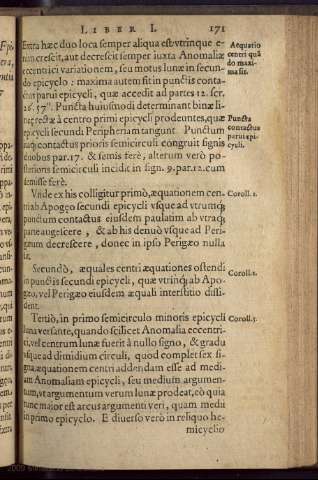 LIBER I. 171
Extra hæc duo loca semper aliqua est vtrinque e-
crescit, aut decrescit semper iuxta Anomaliæ
eccentrici variationem, seu motus lunæ in secun-
do epicyclo: maxima autem fit in punctis conta-
ctus parui epicycli, quæ accedit ad partes 12. scr.
26. 57". Puncta huiusmodi determinant binæ li-
neæ rectæ à centro primi epicycli prodeuntes, quæ
epicycli secundi Peripheriam tangunt. Punctum
contactus prioris semicirculi congruit signis
duobus par. 17. & semis ferè, alterum verò po-
sterioris semicirculi incidit in sign. 9. par. 12. cum
semisse ferè.
Vnde ex his colligitur primò, æquationem cen-
tri ab Apogeo secundi epicycli vsque ad vtrumq;
punctum contactus eiusdem paulatim ab vtraq;
parte augescere, & ab his denuò vsque ad Peri-
geum decrescere, donec in ipso Perigæo nulla
sit.
Secundò, æquales centri æquationes ostendi
in punctis secundi epicycli, quæ vtrinq; ab Apo-
gæo, vel Perigæo eiusdem æquali interstitio dissi-
dent.
Tertiò, in primo semicirculo minoris epicycli
luna versante, quando scilicet Anomalia eccentri-
ci, vel centrum lunæ fuerit à nullo signo, & gradu
vsque ad dimidium circuli, quod complet sex si-
gna, æquationem centri addendam esse ad medi-
am Anomaliam epicycli, seu medium argumen-
tum, vt argumentum verum lunæ prodeat, eò quia
tunc maior est arcus argumenti veri, quam medii
in primo epicyclo. E diuerso verò in reliquo he-
micyclio
Aequatio
centri quã
do maxi-
ma sit.
Puncta
contactus
parui epi-
cycli.
Coroll. 1.
Coroll. 2.
Coroll. 3.